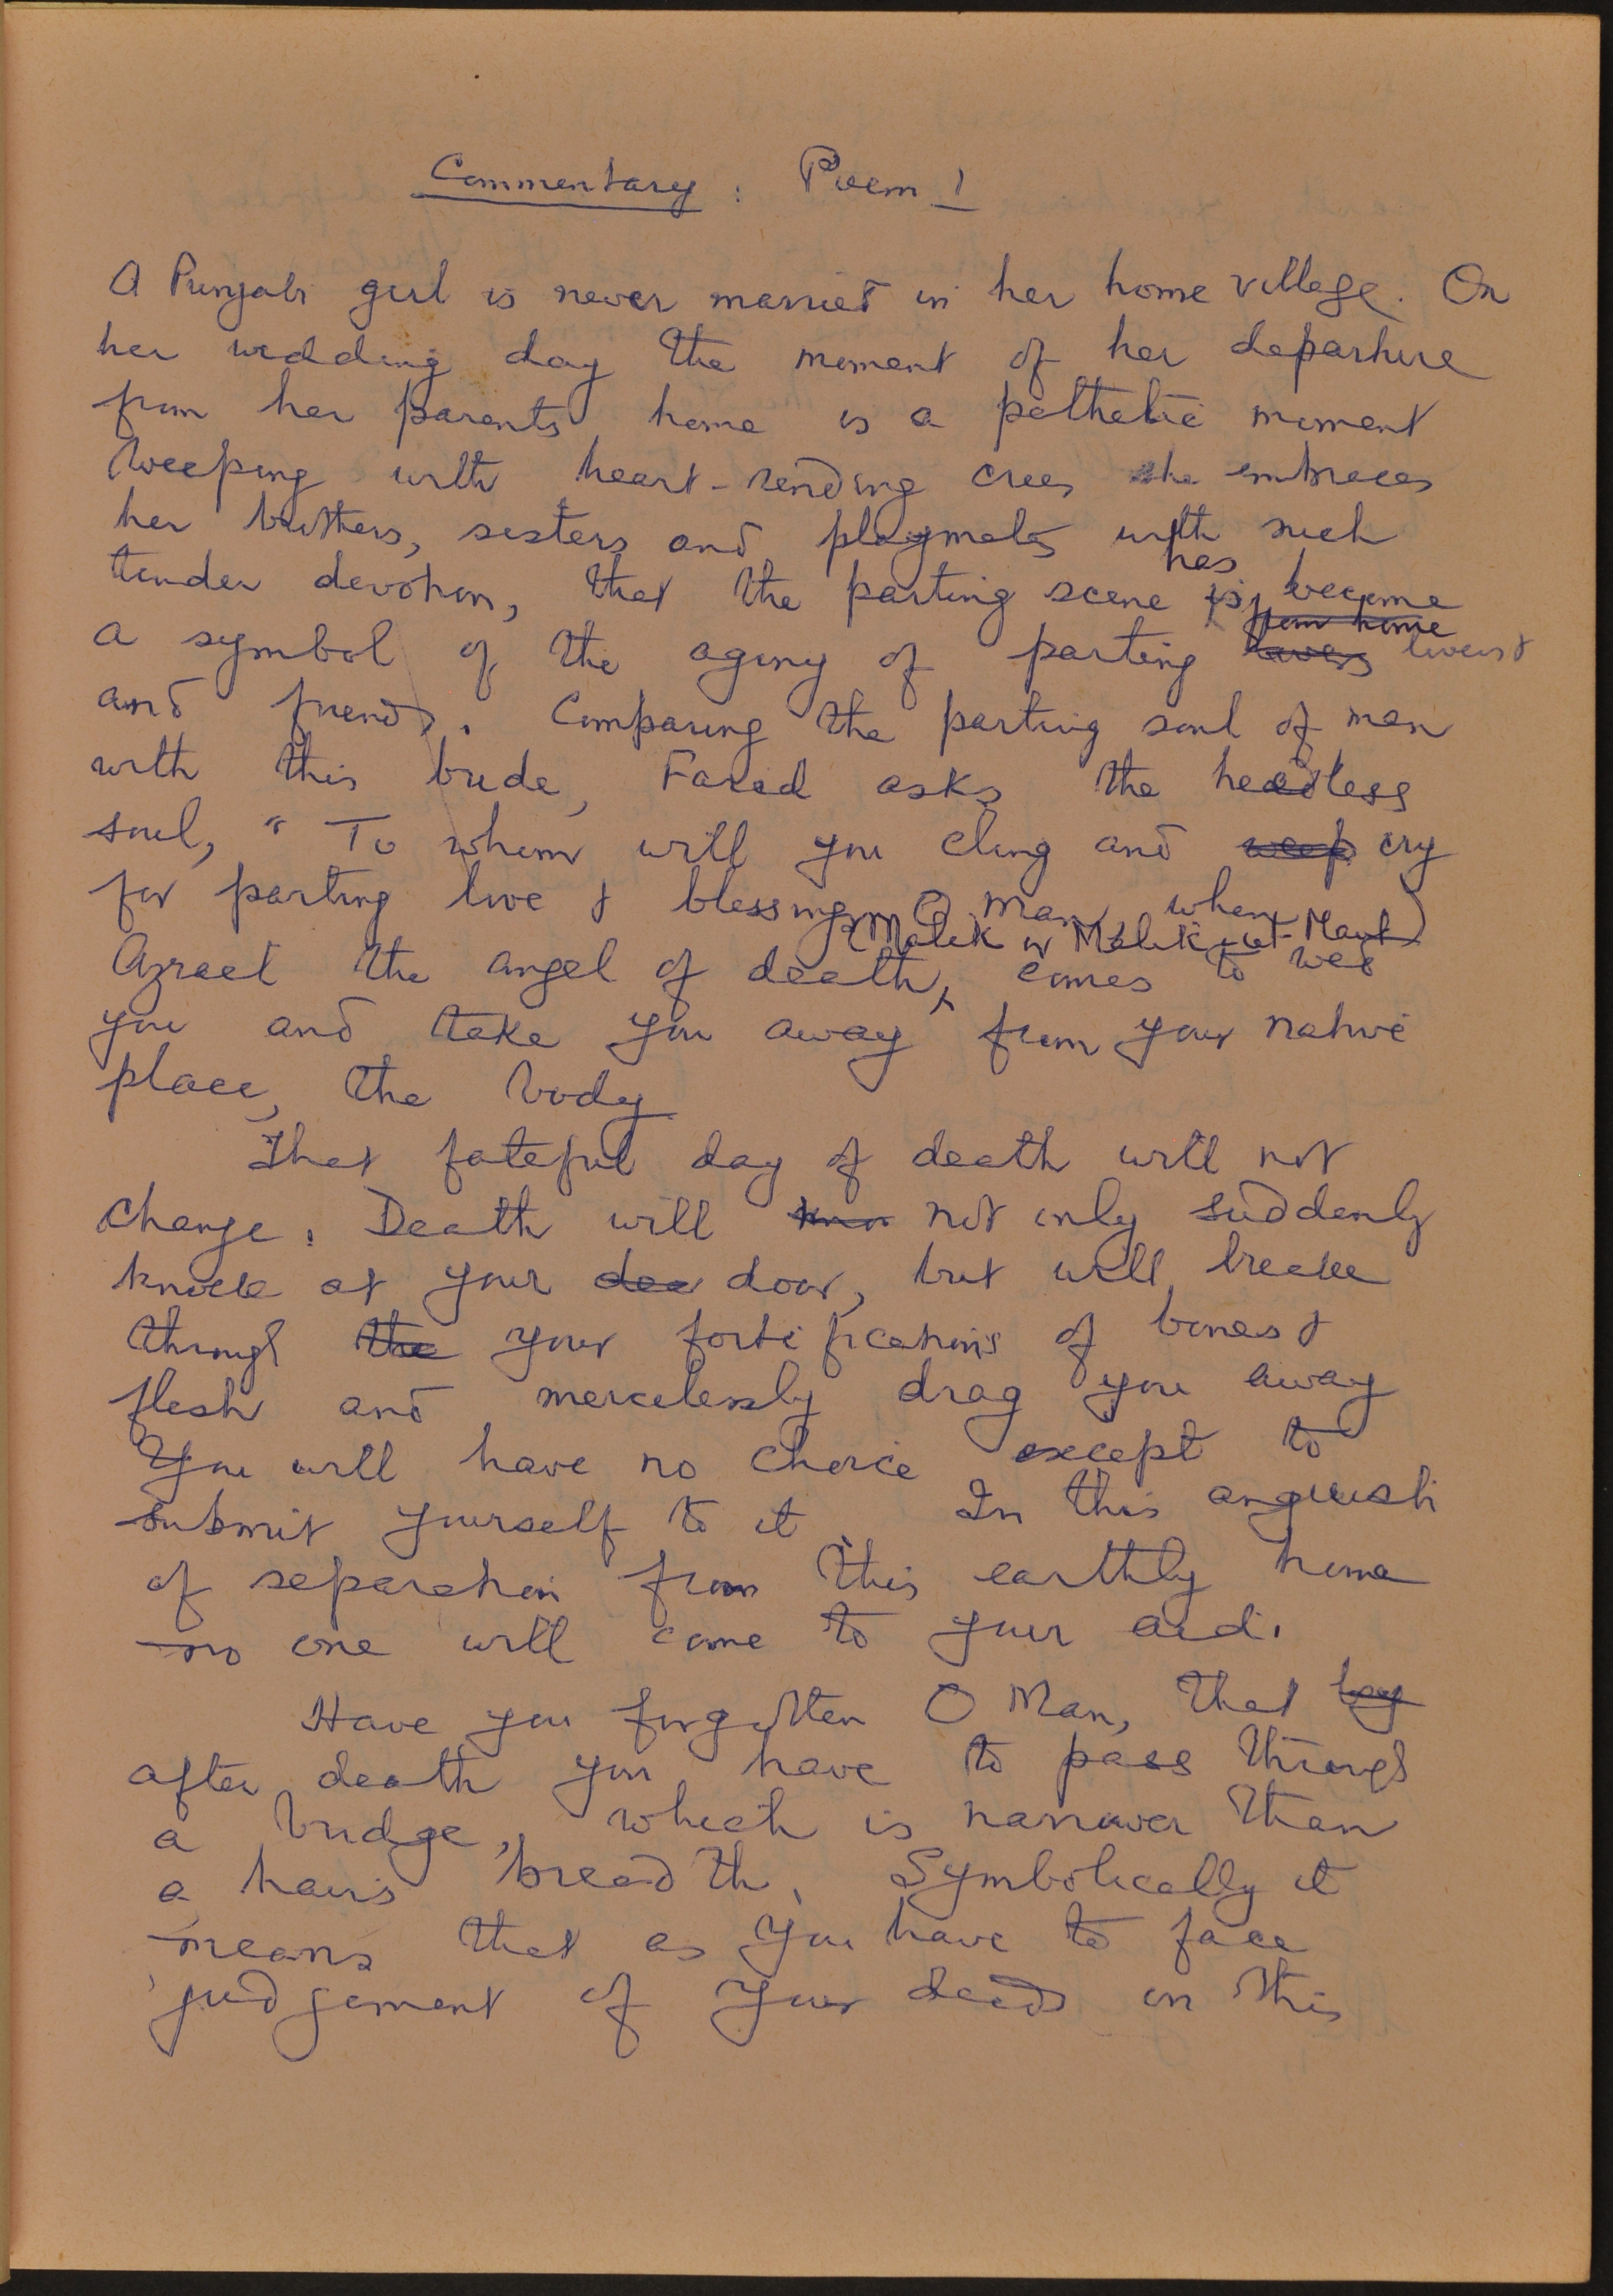 Commentary : Poem 1
A Punjabi girl is never married in her home village. On
her wedding day the moment of her departure
from her parents home is a pathetic moment
Weeping with heart-rending cries she embraces
her brothers, sisters and playmates with such
tender devotion, that the parting scene is has become
a symbol of the agony of parting from home lovers &
and friends. Comparing the parting soul of man
with this bride, Farid asks the heedless
soul, " To whom will you cling and weep cry
for parting love & blessings O man, when
Azrael the angel of death, (Malik or Malik-ul-Maut) comes to wed
you and take you away from your native
place, the body
That fateful day of death will not
change. Death will not only suddenly
knock at your door, but will break
through the your fortifications of bones &
flesh and mercilessly drag you away
You will have no choice except to
submit yourself to it. In this anguish
of separation from this earthly home
no one will come to your aid.
Have you forgotten O Man, that
after death you have to pass through
a bridge, which is narrower than
a hair's breadth. Symbolically it
means that as you have to face
judgement of your deeds in this